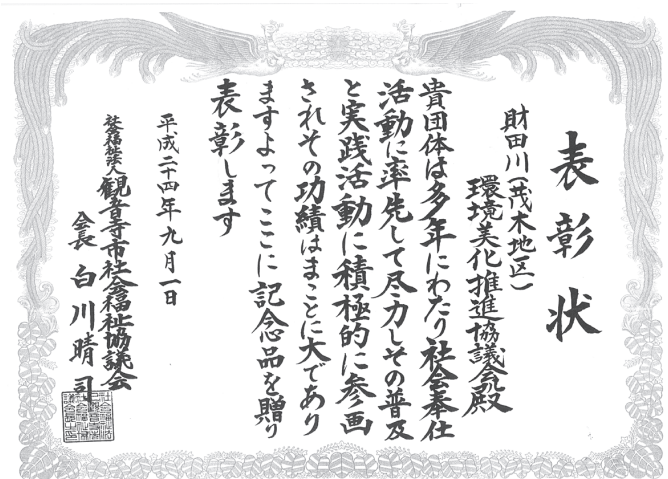 表彰状
財田川(茂木地区)
環境美化推進協議会殿
貴団体は多年にわたり社会奉仕
活動に率先して尽力しその普及
と実践活動に積極的に参画
されその功績はまことに大であり
ますよってここに記念品を贈り
表彰します
平成二十四年九月一日
社会福祉法人観音寺市社会福祉協議会
会長 白川晴司